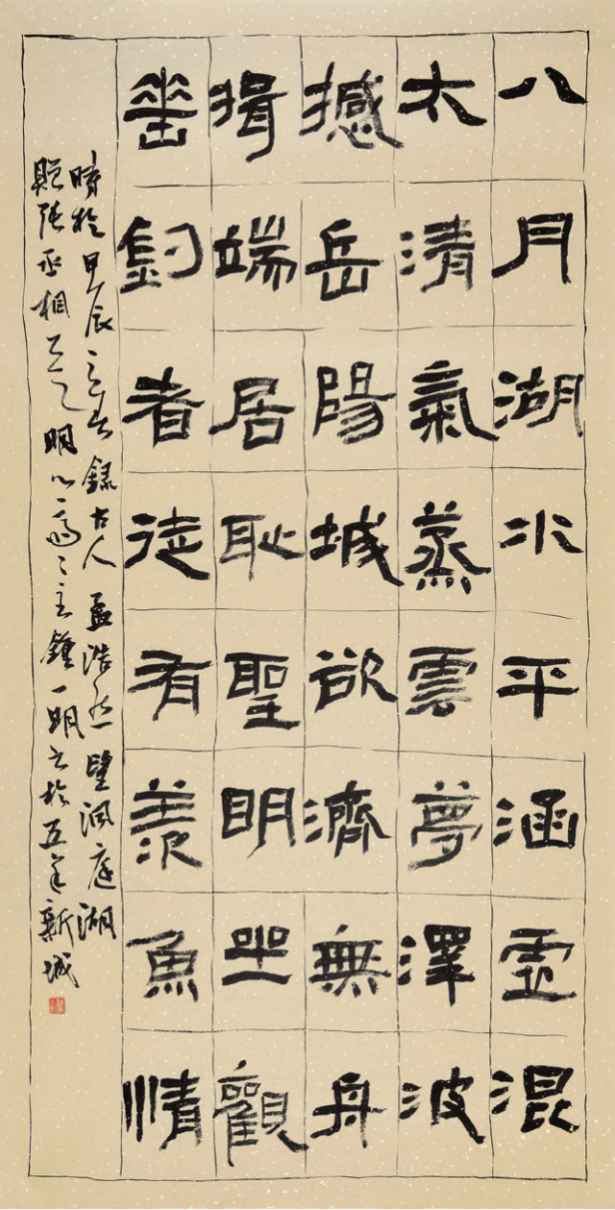 八月湖水平涵虛混
太清氣蒸雲夢澤波
撼岳陽城欲濟無舟
揖端居恥聖明坐觀
垂釣者徒有羨魚情
時於甲辰春錄古人孟浩然望洞庭湖
贈張丞相明心齋主鍾一明書於五羊新城